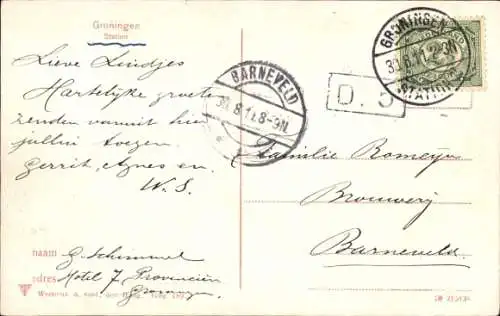 Groningen
Station
Lieve Luidjes
Hartelijke groeten
zenden vanuit hier
jullie toegen
Gerrit, Agnes en
W. S.
naam G. Schimmel
adres Hotel 7 Provinciën
Groningen
GRONINGEN
30.8.11. 2-3N
STATION
BARNEVELD
30.8.11. 8-9N.
D. 5
Familie Romeijn
Brouwerij
Barneveld.